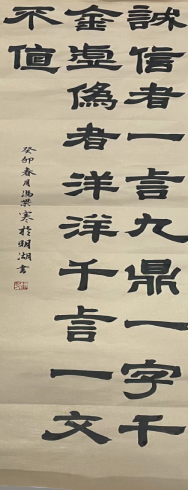 誠信者一言九鼎一字千
金虛偽者洋洋千言一文
不值
癸卯春月馮寒於明湖書